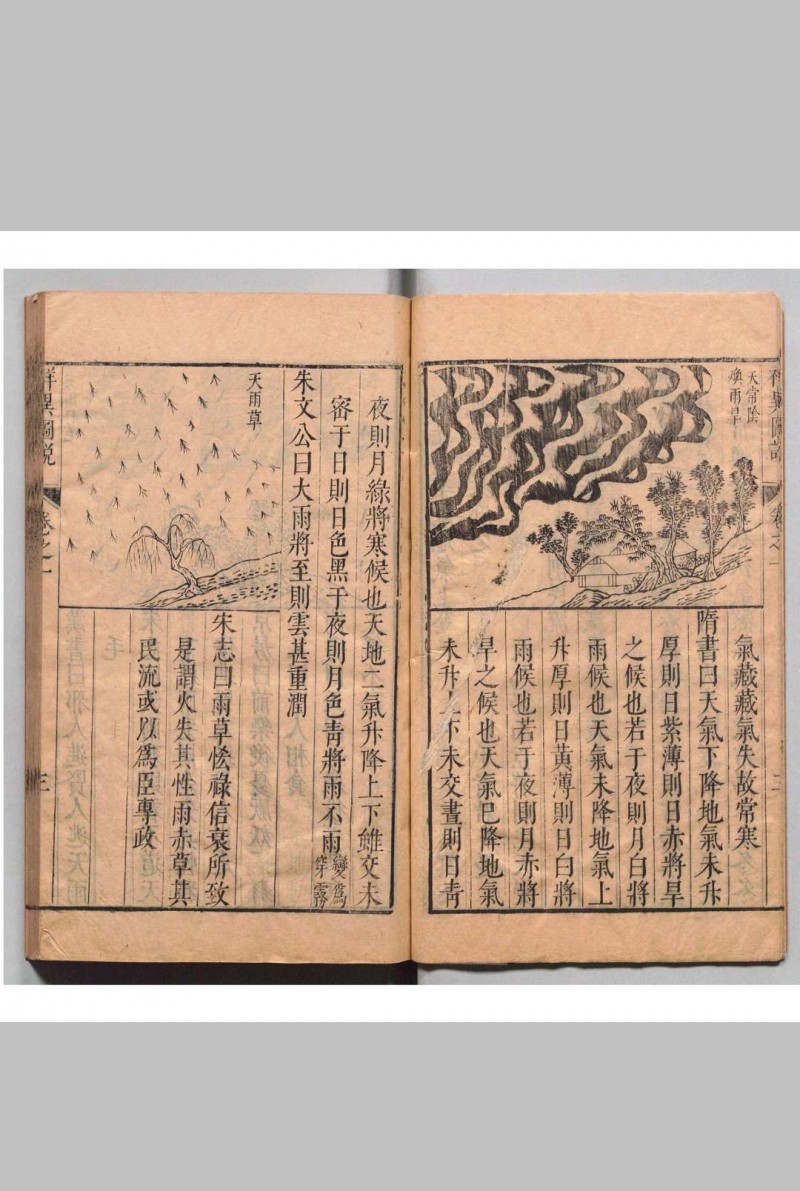 祥異圖說
卷之一
二
天常陰
煥雨旱
氣藏藏氣失故常寒
隋書曰天氣下降地氣未升
厚則日紫薄則日赤將旱
之候也若于夜則月白將
雨候也天氣未降地氣上
升厚則日黃薄則日白將
雨候也若于夜則月赤將
旱之候也天氣已降地氣
未升上下未交晝則日青
夜則月綠將寒候也天地二氣升降上下雖交未
密于日則日色黑于夜則月色青將雨不雨變爲穿霧
朱文公曰大雨將至則雲甚重潤
天雨草
宋志曰雨草恡祿信衰所致
是謂火失其性雨赤草其
民流或以爲臣專政
祥異圖說
卷之一
三